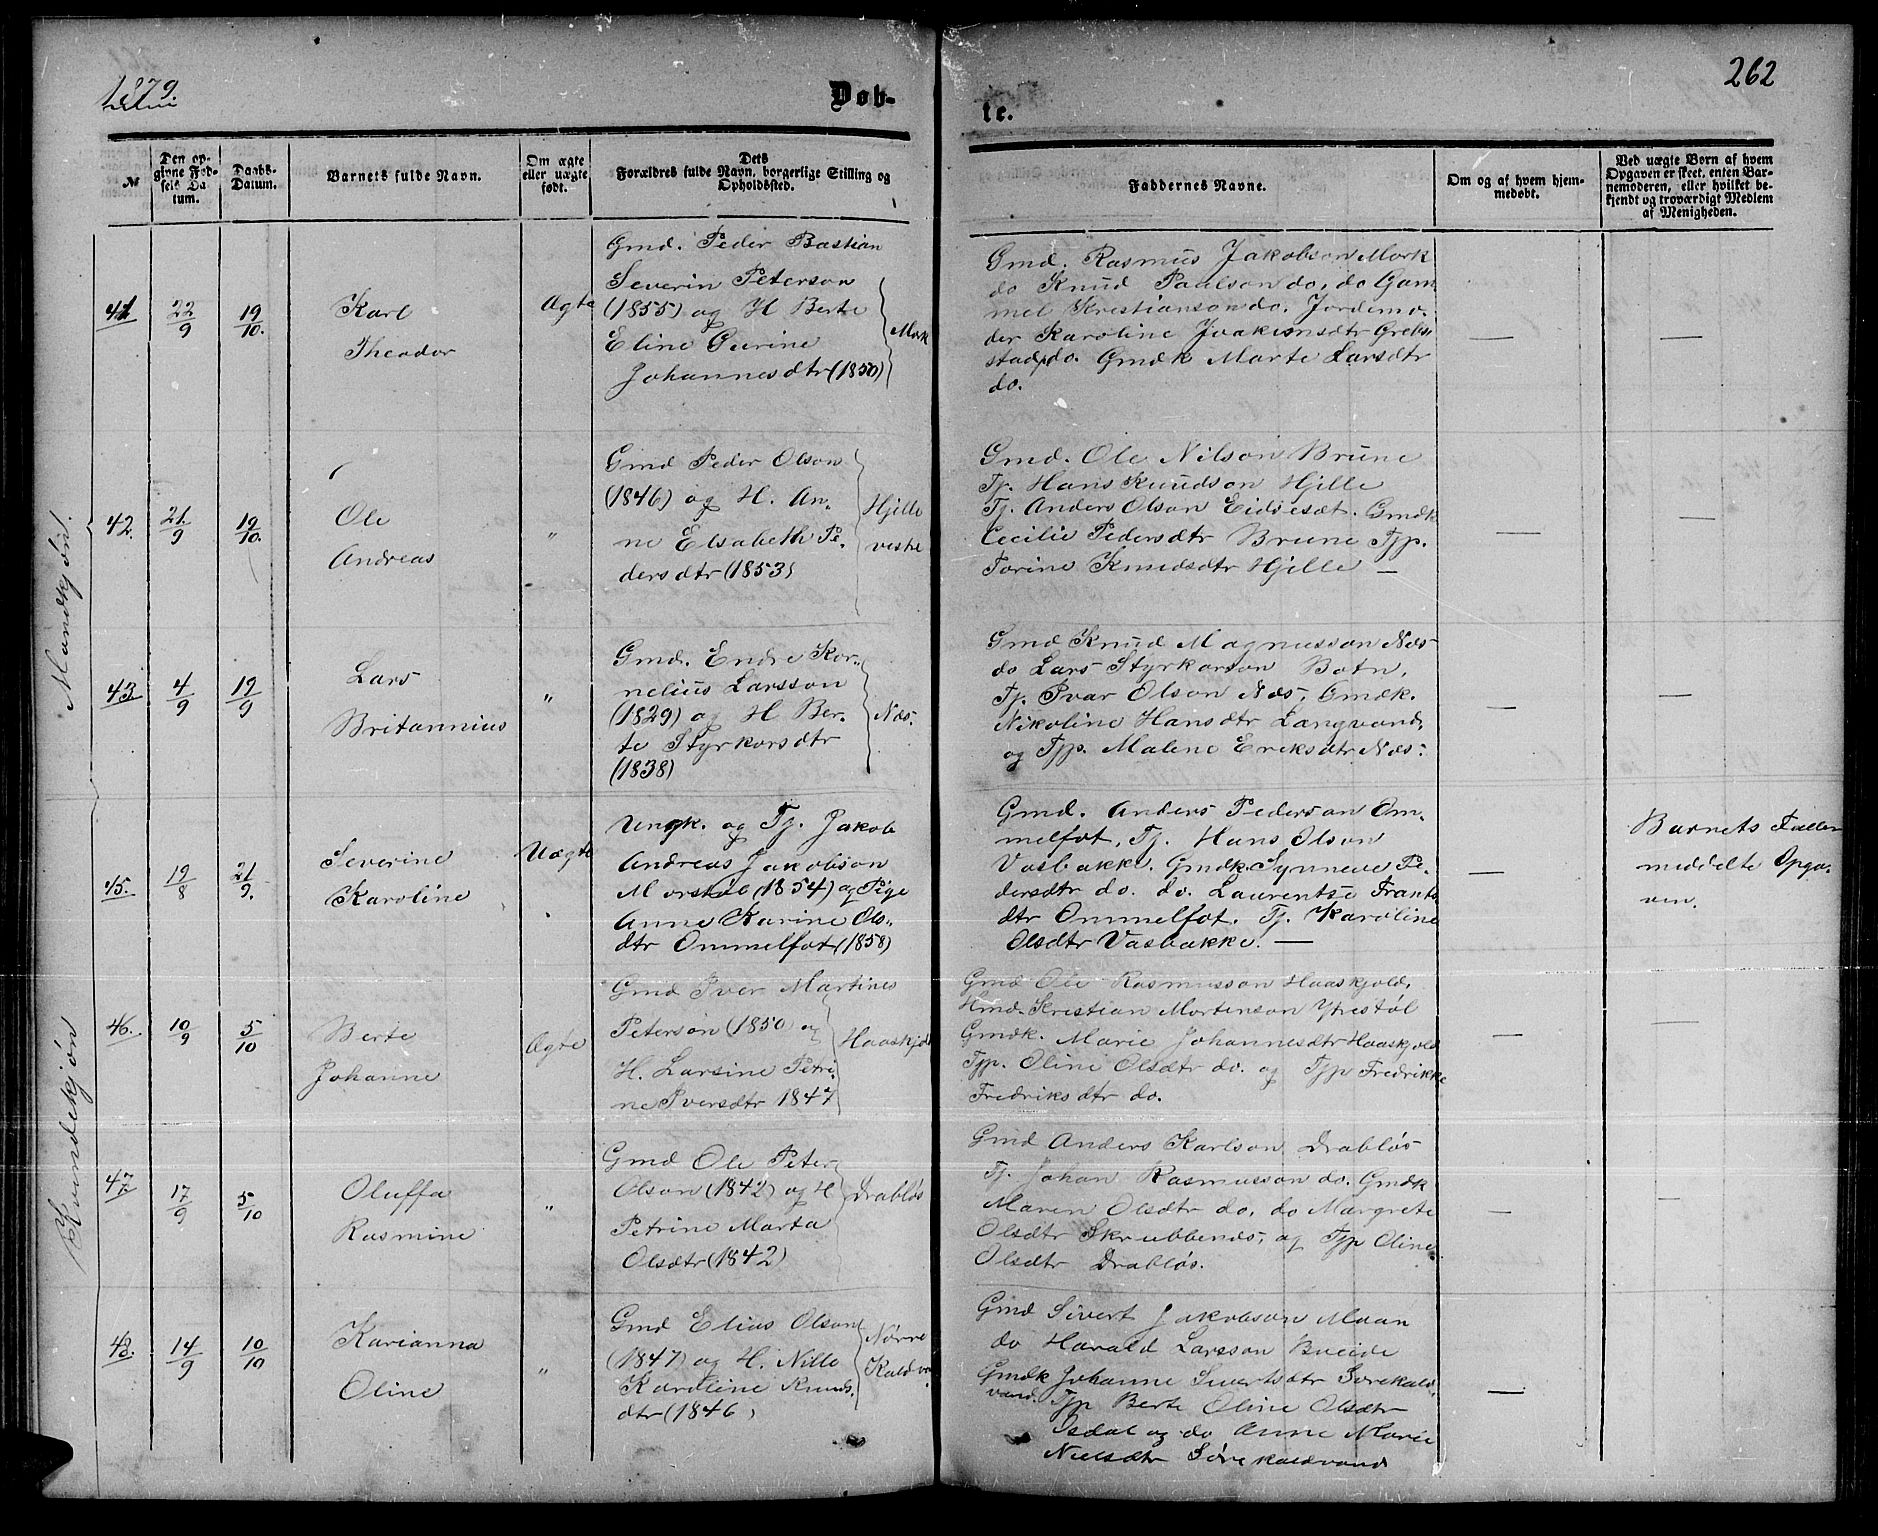 1879.
Døb-
te.
262
№
Den op-
givne Fød-
sels Da-
tum.
Daabs-
Datum.
Barnets fulde Navn.
Om ægte
eller uægte
født.
Dets
Forældres fulde Navn, borgerlige Stilling og
Opholdssted.
Faddernes Navne.
Om og af hvem hjem-
medøbt.
Ved uægte Børn af hvem
Opgaven er skeet, enten Bar-
nemoderen, eller hvilket be-
kjendt og troværdigt Medlem
af Menigheden.
Mandkjøn.
41
22/9
19/10.
Karl
Theodor
Ægte
Gmd. Peder Bastian
Severin Peterson
(1855) og H Berte
Eline Gurine
Johannesdtr (1850)
Mork
Gmd. Rasmus Jakobson Mork
do Knud Paulson do, do Gam-
mel Kristianson do. Jordemo-
der Karoline Joakimsdtr Greb-
stad do. Gmdk Marte Larsdtr
do.
—
—
42.
21/9
19/10.
Ole
Andreas
"
Gmd Peder Olson
(1846) og H. An-
ne Elsabeth Pe-
dersdtr (1853)
Hjelle
vestre
Gmd. Ole Nilson Brune
Tj. Hans Knudson Hjelle
Tj. Anders Olson Eidseset. Gmdk
Cecilie Pedersdtr Brune Tjp.
Torine Knudsdtr Hjelle —
—
—
43.
4/9
19/9
Lars
Britannius
"
Gmd. Endre Kor-
nelius Larsson
(1829) og H Ber-
te Styrkorsdtr
(1838)
Næs
Gmd Knud Magnusson Næs
do Lars Styrkorson Botn,
Tj. Ivar Olson Næs, Gmdk.
Nikoline Hansdtr Langvand,
og Tjp. Malene Eriksdtr Næs.
—
—
Kvindekjøn
45.
19/8
21/9.
Severine
Karoline
Uægte
Ungk. og Tj. Jakob
Andreas Jakobson
Morstøl (1854) og Pige
Anne Karine Ols-
dtr Ommelfot (1858)
Gmd. Anders Pederson Om-
melfot, Tj. Hans Olson
Vasbakke. Gmdk. Synneve Pe-
dersdtr do. do. Laurentse Frants
dtr Ommelfot. Tj. Karoline
Olsdtr Vasbakke. —
—
Barnets Fader
meddelte Opga-
ven.
46.
10/9
5/10
Berte
Johanne
Ægte
Gmd Iver Martines
Peterson (1850) og
H. Larsine Petri-
ne Iversdtr 1847
Haaskjold
Gmd Ole Rasmusson Haaskjold,
Hmd. Kristian Mortenson Ytrestøl
Gmdk. Marie Johannesdtr Haaskjold
Tjp. Oline Olsdtr do. og Tjp Fredrikke
Fredriksdtr do.
—
—
47.
17/9
5/10
Oluffa
Rasmine
"
Gmd Ole Peter
Olson (1842) og H
Petrine Marta
Olsdtr (1842)
Drabløs
Gmd Anders Karlson Drabløs
Tj. Johan Rasmusson do. Gmdk
Maren Olsdtr do, do Margrete
Olsdtr Skrubbenes, og Tjp Oline
Olsdtr Drabløs.
—
—
48.
14/9
10/10
Karianna
Oline
"
Gmd Elias Olson
(1847) og H. Nille
Karoline Knuds-
dtr (1846)
Nørre
Kaldva
Gmd Sivert Jakobson Maan
do Harald Larsson Bueide
Gmdk Johanne Sivertsdtr Sørekald-
vand. Tjp Berte Oline Olsdtr
Isdal og do Anne Marie
Nielsdtr Sørekaldvand
—